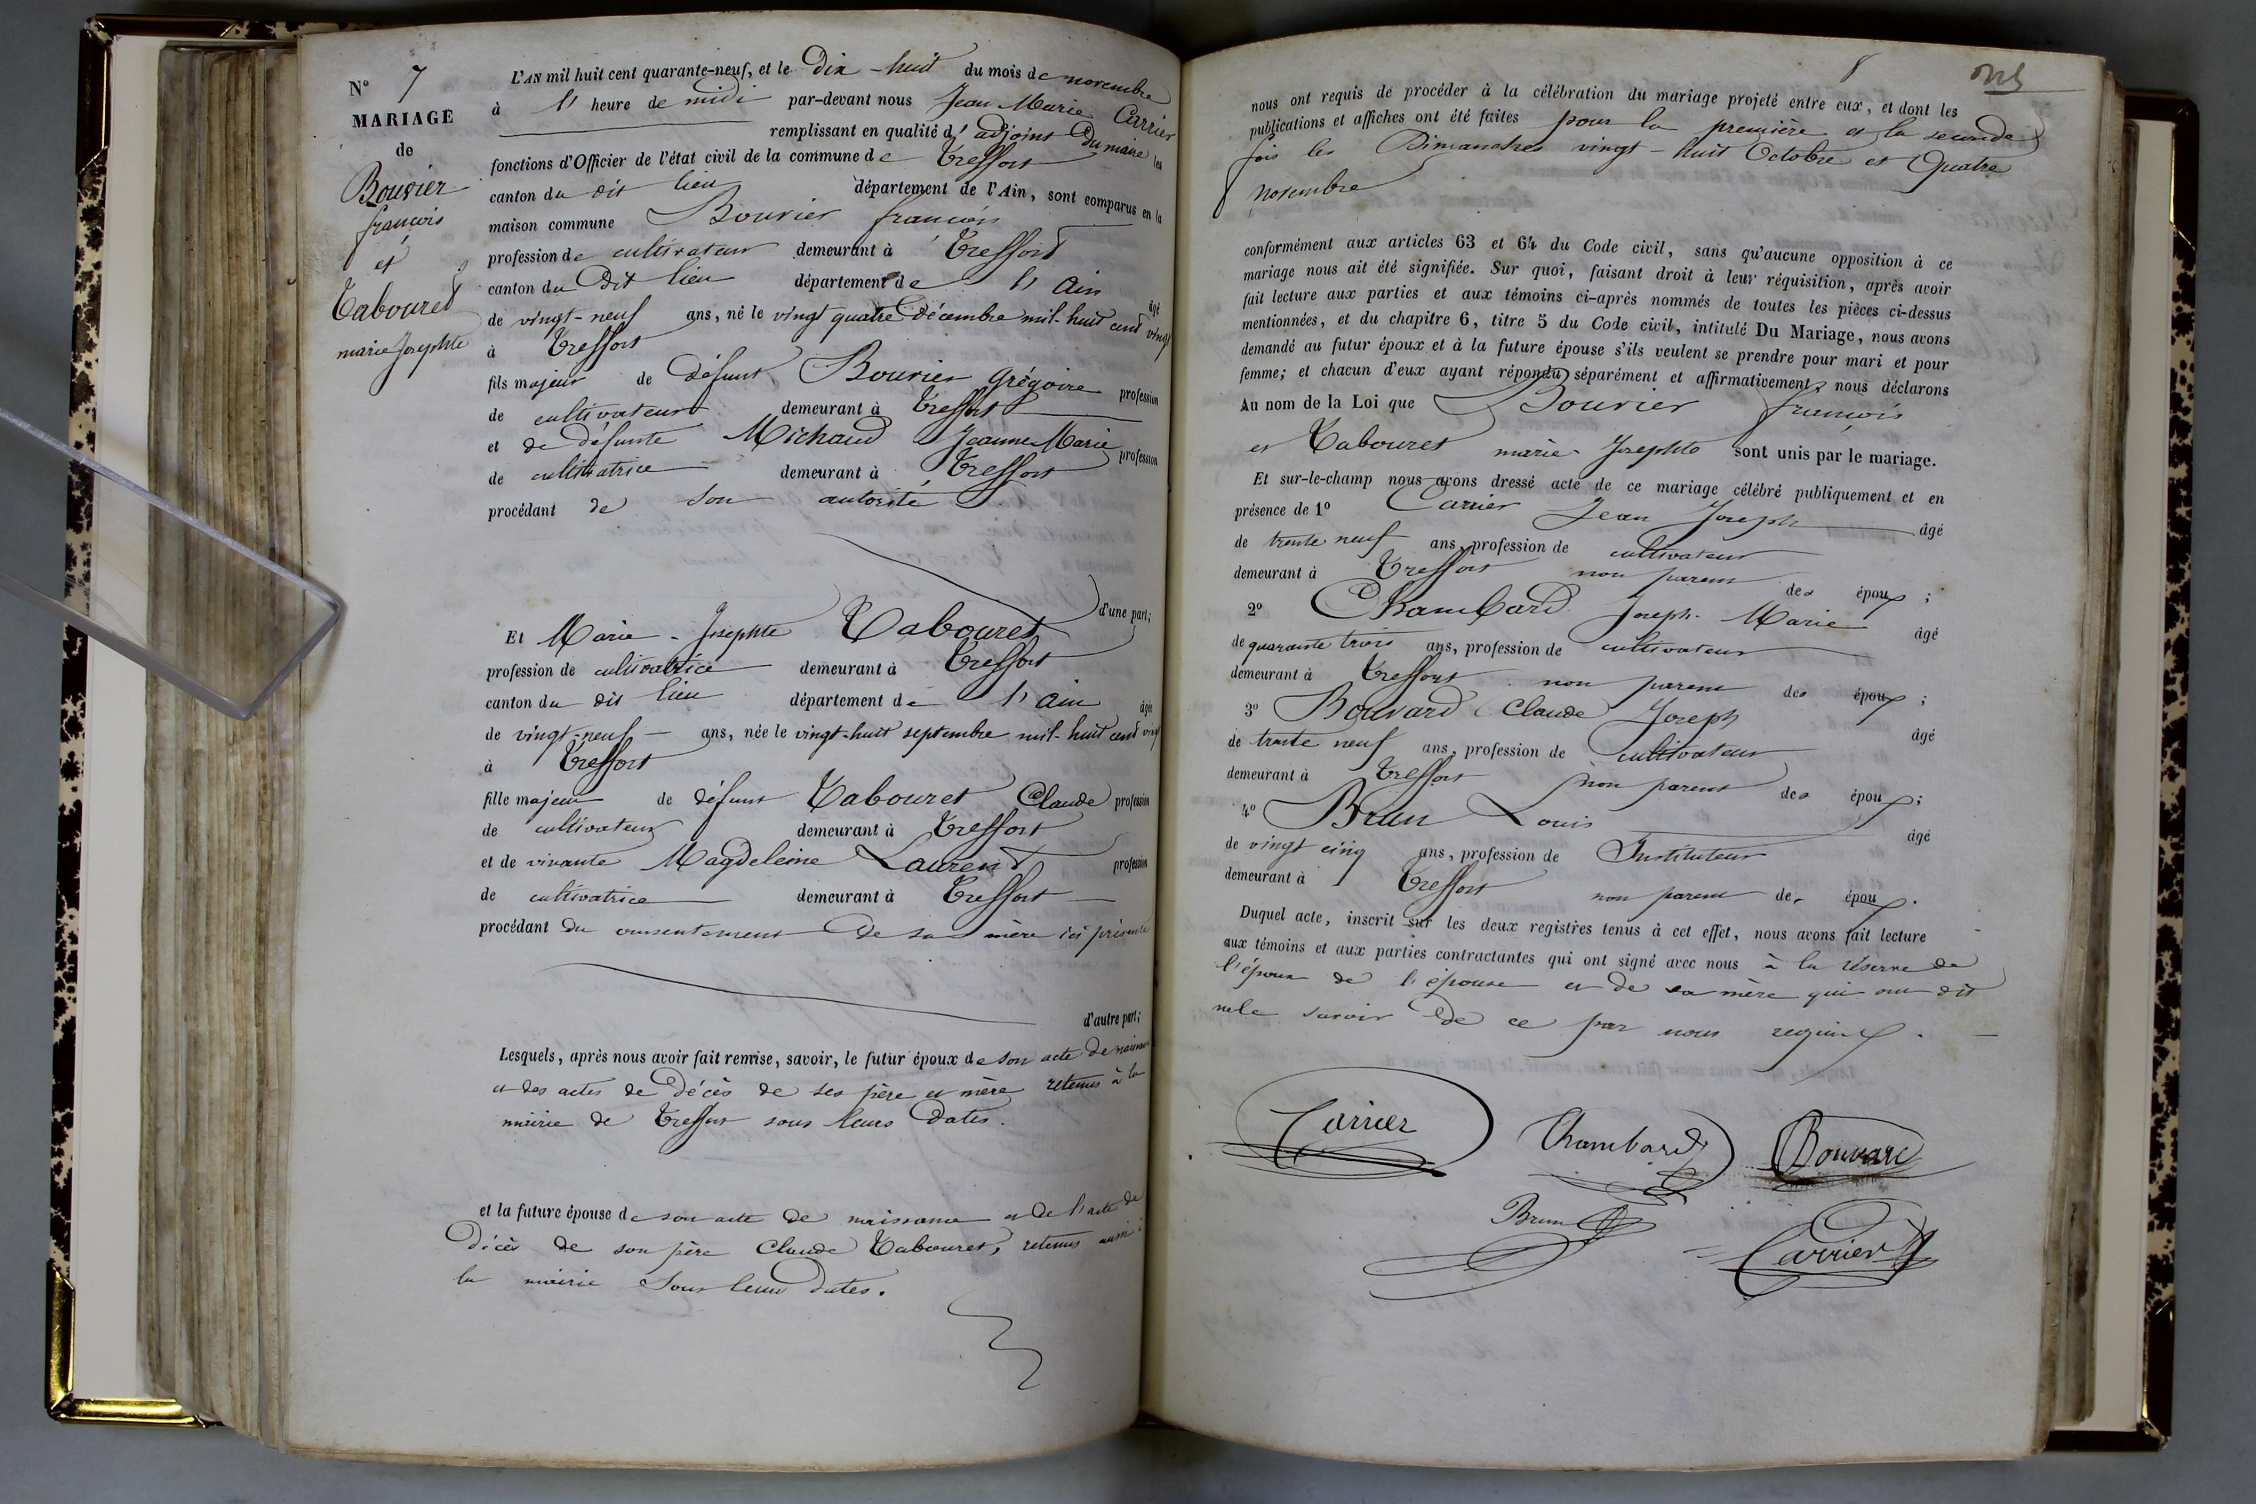 N° 7
MARIAGE
de
Bouvier
françois
et
Tabouret
marie Josephte
L'AN mil huit cent quarante-neuf, et le Dix-huit du mois de novembre
à l' heure de midi par-devant nous Jean Marie Carrier
remplissant en qualité d'adjoint Du maire les
fonctions d'Officier de l'état civil de la commune de Treffort
canton du dit lieu département de l'Ain, sont comparus en la
maison commune Bouvier françois
profession de cultivateur demeurant à Treffort
canton du Dit lieu département de l'Ain âgé
de vingt-neuf ans, né le vingt quatre Décembre mil-huit cent vingt
à Treffort
fils majeur de défunt Bouvier Grégoire profession
de cultivateur demeurant à Treffort
et de défunte Michaud Jeanne Marie profession
de cultivatrice demeurant à Treffort
procédant de son autorité
d'une part;
Et Marie-Josephte Tabouret
profession de cultivatrice demeurant à Treffort
canton du dit lieu département de l'Ain âgée
de vingt-neuf ans, née le vingt-huit septembre mil-huit cent vingt
à Treffort
fille majeur de défunt Tabouret Claude profession
de cultivateur demeurant à Treffort
et de vivante Magdeleine Laurent profession
de cultivatrice demeurant à Treffort
procédant du consentement de sa mère ici présente
d'autre part;
Lesquels, après nous avoir fait remise, savoir, le futur époux de son acte de naissance
et des actes de Décès de ses père et mère retenus à la
mairie de Treffort sous leurs Dates.
et la future épouse de son acte de naissance et de l'acte de
Décès de son père Claude Tabouret, retenus aussi à
la mairie sous leurs dates.
8
nous ont requis de procéder à la célébration du mariage projeté entre eux, et dont les
publications et affiches ont été faites pour la première et la seconde
fois les Dimanches vingt-huit Octobre et Quatre
novembre
conformément aux articles 63 et 64 du Code civil, sans qu'aucune opposition à ce
mariage nous ait été signifiée. Sur quoi, faisant droit à leur réquisition, après avoir
fait lecture aux parties et aux témoins ci-après nommés de toutes les pièces ci-dessus
mentionnées, et du chapitre 6, titre 5 du Code civil, intitulé Du Mariage, nous avons
demandé au futur époux et à la future épouse s'ils veulent se prendre pour mari et pour
femme; et chacun d'eux ayant répondu séparément et affirmativement, nous déclarons
Au nom de la Loi que Bouvier françois
et Tabouret marie-Josephte sont unis par le mariage.
Et sur-le-champ nous avons dressé acte de ce mariage célébré publiquement et en
présence de 1° Carrier Jean Joseph âgé
de trente neuf ans, profession de cultivateur
demeurant à Treffort non parent des époux;
2° Chambard Joseph-Marie âgé
de quarante trois ans, profession de cultivateur
demeurant à Treffort non parent des époux;
3° Bouvard Claude Joseph âgé
de trente neuf ans, profession de cultivateur
demeurant à Treffort non parent des époux;
4° Brun Louis âgé
de vingt cinq ans, profession de Instituteur
demeurant à Treffort non parent des époux.
Duquel acte, inscrit sur les deux registres tenus à cet effet, nous avons fait lecture
aux témoins et aux parties contractantes qui ont signé avec nous à la réserve de
l'époux de l'épouse et de sa mère qui ont dit
ne le savoir de ce par nous requis.
Carrier Chambard Bouvard
Brun Carrier